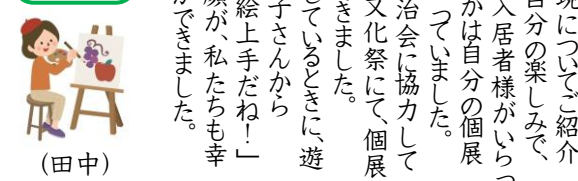 現についてご紹介
自分の楽しみで、
入居者様がいらっ
かは自分の個展
っていました。
治会に協力して
文化祭にて、個展
きました。
しているときに、遊
子さんから
絵上手だね！」
顔が、私たちも幸
ができました。
(田中)